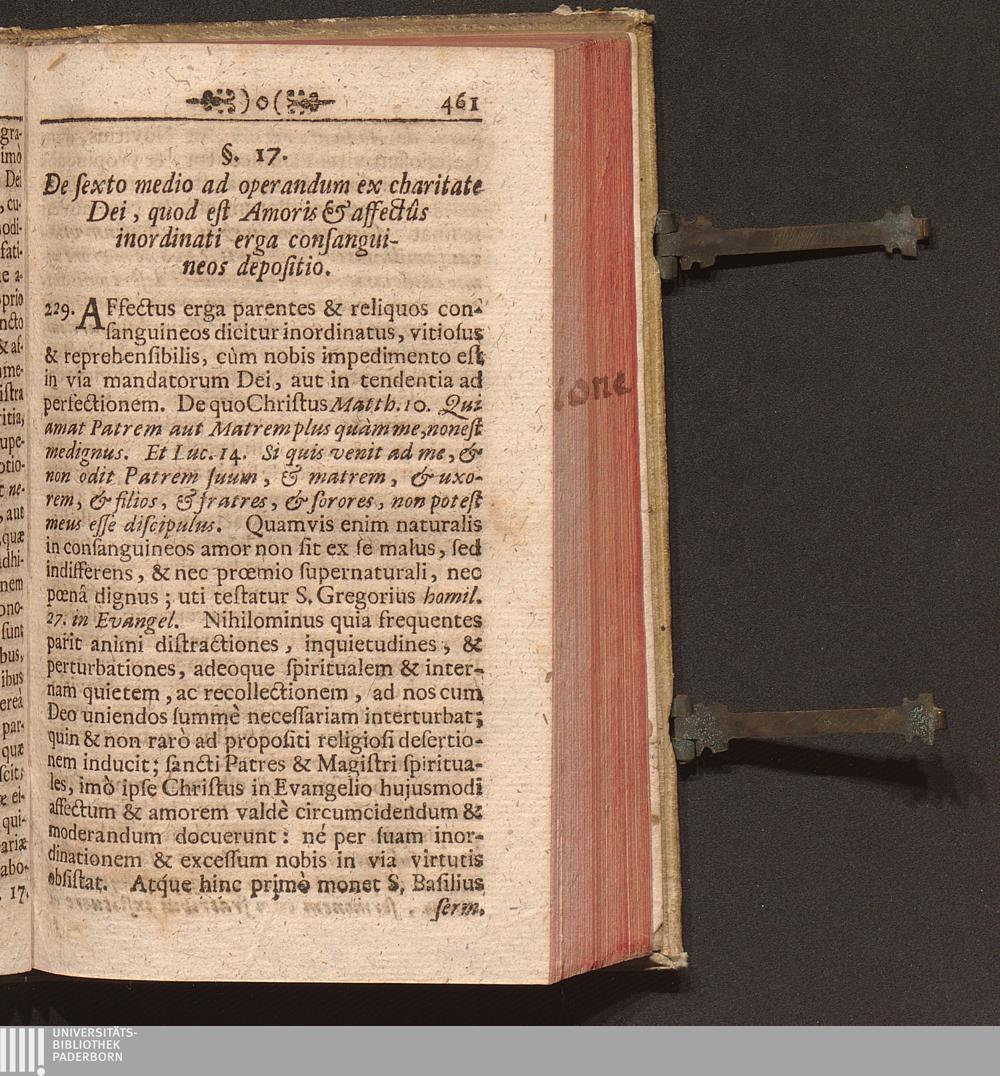 )o( 461
§. 17.
De ſexto medio ad operandum ex charitate
Dei, quod eſt Amoris & affectûs
inordinati erga conſangui-
neos depoſitio.
229. AFfectus erga parentes & reliquos con-
ſanguineos dicitur inordinatus, vitioſus
& reprehenſibilis, cùm nobis impedimento eſt
in via mandatorum Dei, aut in tendentia ad
perfectionem. De quo Chriſtus Matth. 10. Qui
amat Patrem aut Matrem plus quàm me, non eſt
me dignus. Et Luc. 14. Si quis venit ad me, &
non odit Patrem ſuum, & matrem, & uxo-
rem, & filios, & fratres, & ſorores, non poteſt
meus eſſe diſcipulus. Quamvis enim naturalis
in conſanguineos amor non ſit ex ſe malus, ſed
indifferens, & nec prœmio ſupernaturali, nec
pœnâ dignus; uti teſtatur S. Gregorius homil.
27. in Evangel. Nihilominus quia frequentes
parit animi diſtractiones, inquietudines, &
perturbationes, adeoque ſpiritualem & inter-
nam quietem, ac recollectionem, ad nos cum
Deo uniendos ſummè neceſſariam interturbat;
quin & non rarò ad propoſiti religioſi deſertio-
nem inducit; ſancti Patres & Magiſtri ſpiritua-
les, imò ipſe Chriſtus in Evangelio hujusmodi
affectum & amorem valdè circumcidendum &
moderandum docuerunt: né per ſuam inor-
dinationem & exceſſum nobis in via virtutis
obſiſtat. Atq́ue hinc primò monet S. Baſilius
ſerm.
gra-
imò
Dei
, cu-
odi-
ſati-
ie a-
prio
ncto
& af-
me-
iſtra
ritia,
upe-
otio-
t ne-
, aut
quæ
dhi-
nem
ono-
ſunt
bus,
ibus
ereà
par-
quæ
ſcit;
æ ei-
qui-
ariæ
abo-
. 17.
ione
UNIVERSITÄTS-
BIBLIOTHEK
PADERBORN